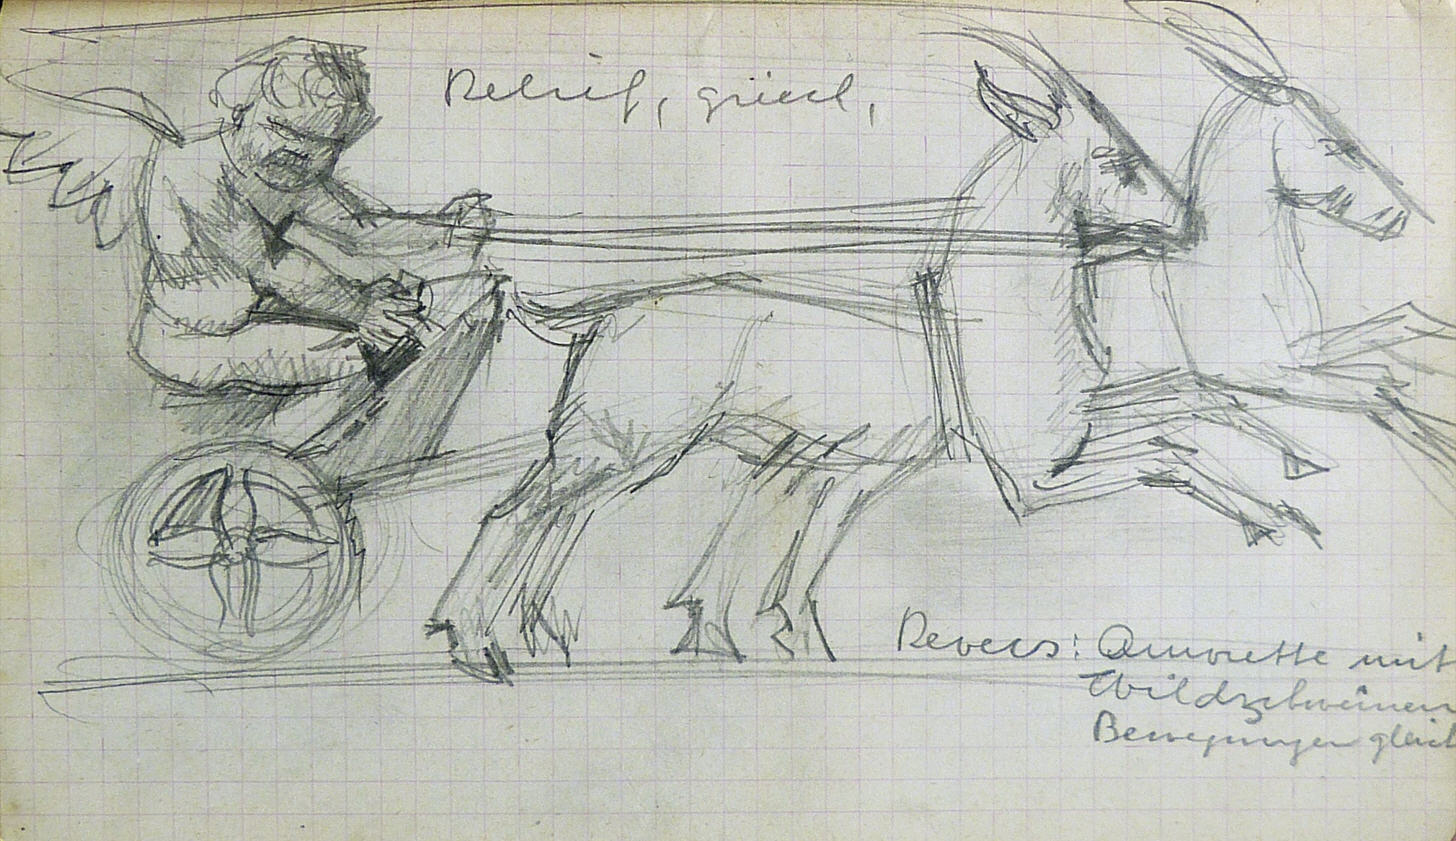 Relief, griech,
Revers: Amorette mit
Wildschweinen
Bewegungen gleich